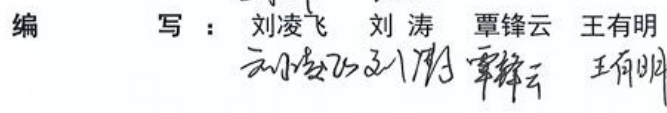 编 写 ： 刘凌飞 刘 涛 覃锋云 王有明
刘凌飞 刘涛 覃锋云 王有明